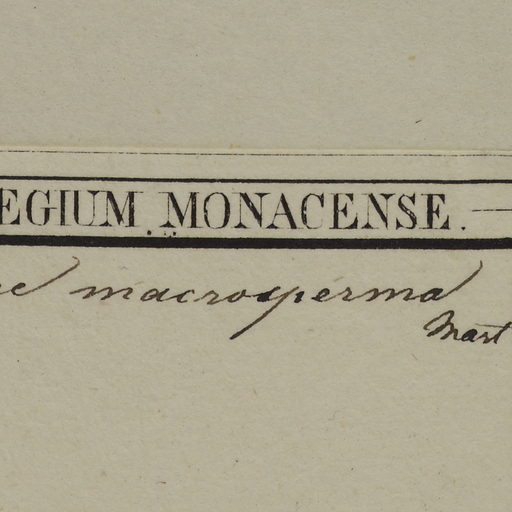 EGIUM MONACENSE.
macrosperma
Mart